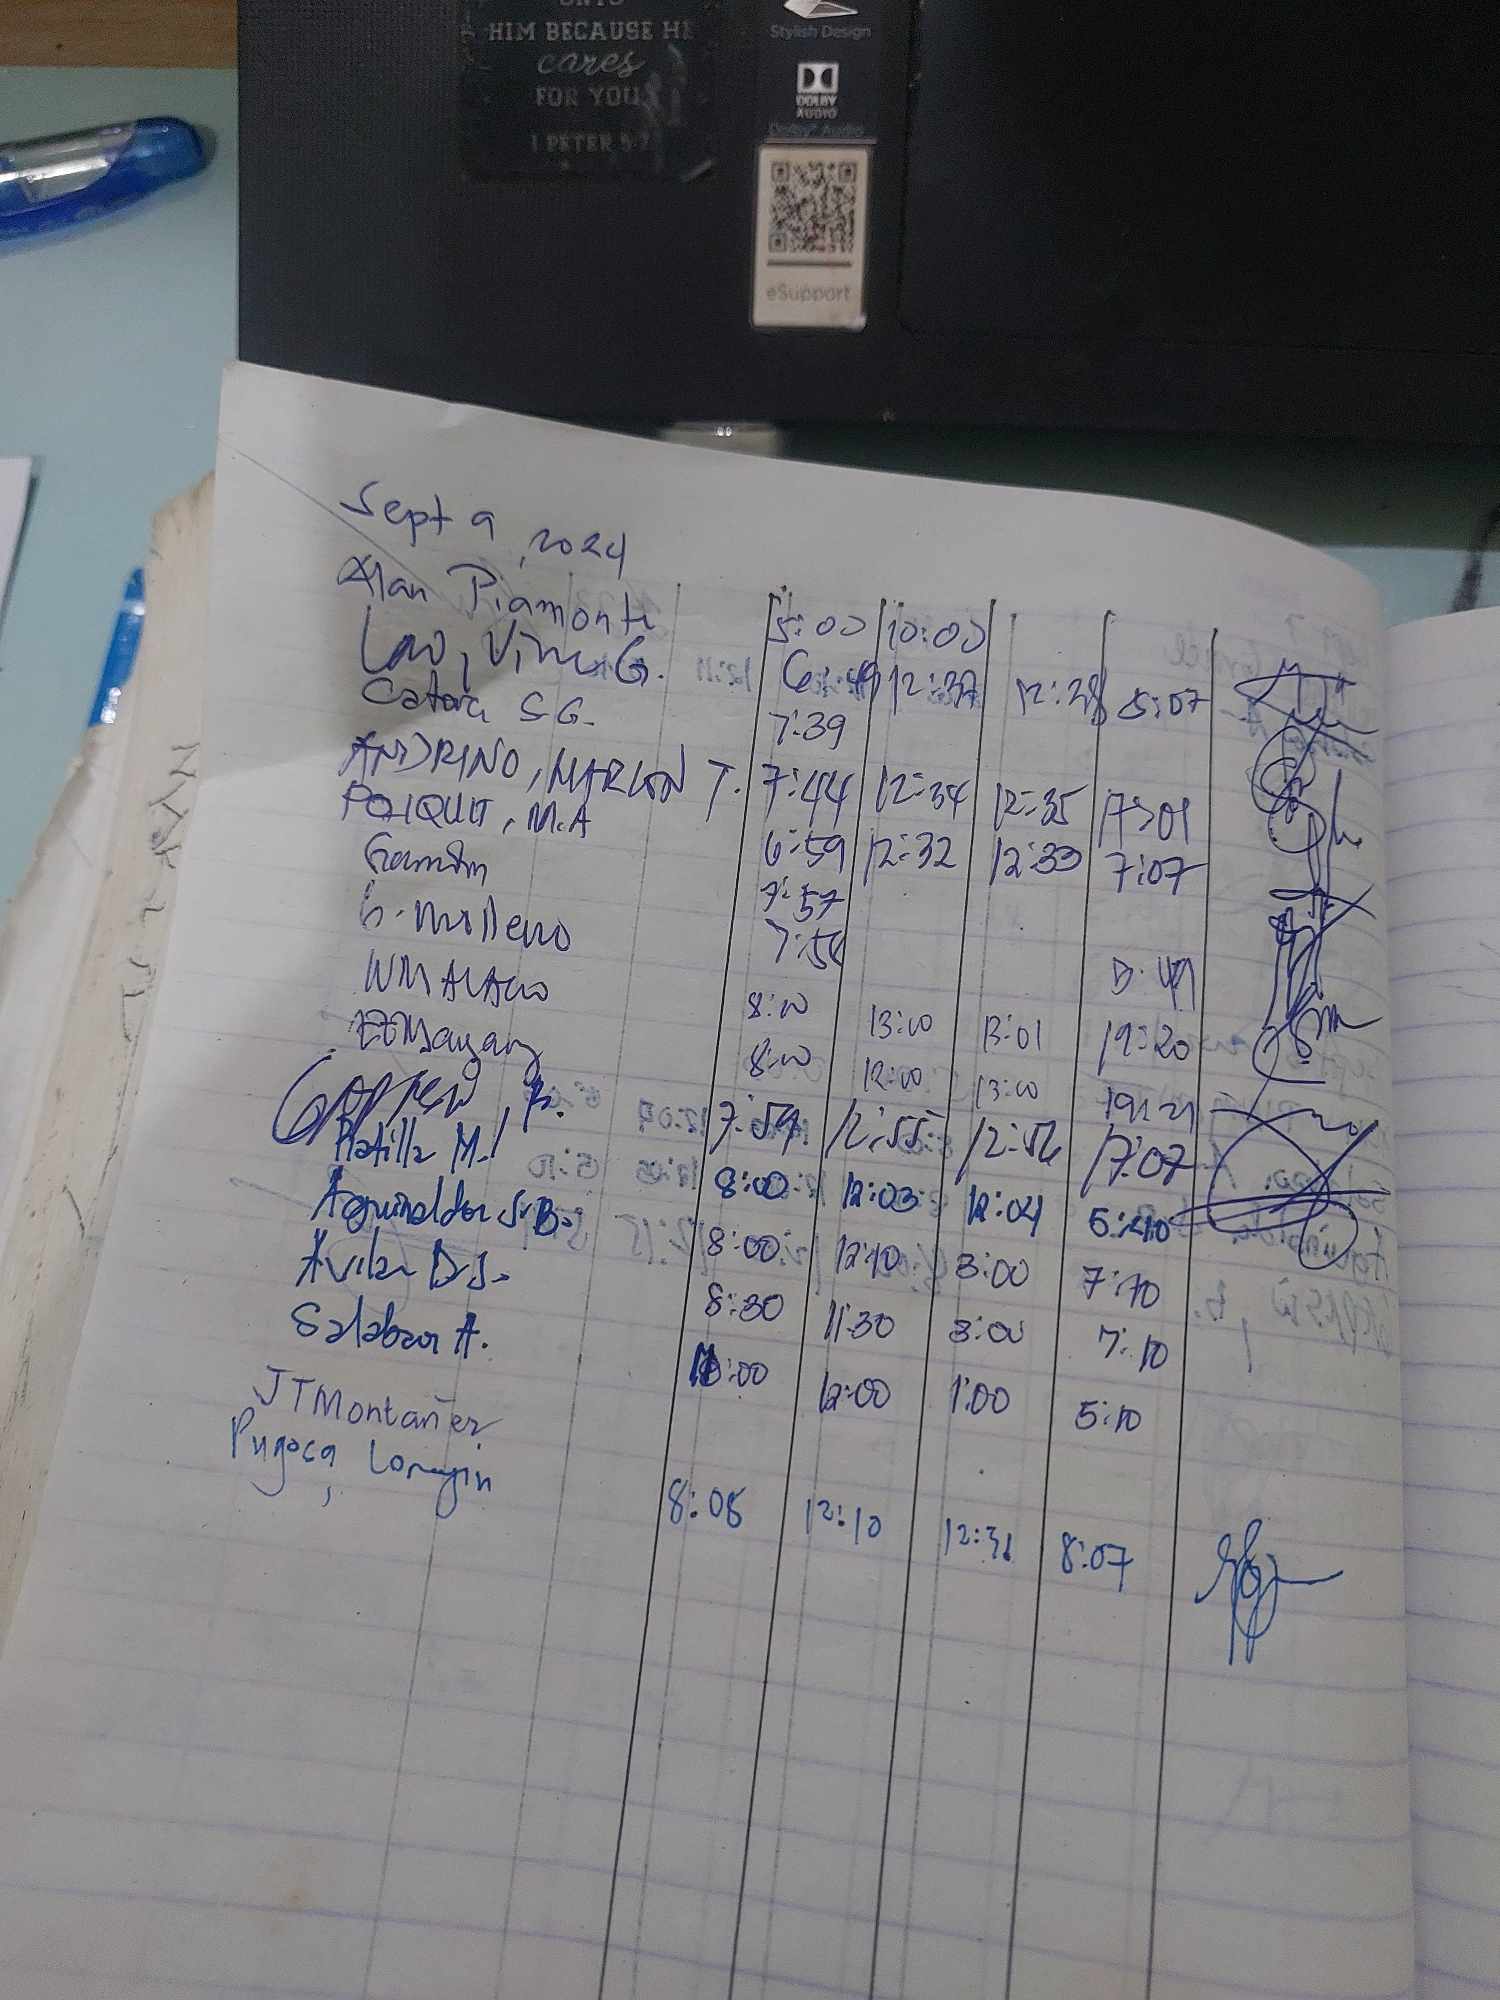 UNTO
HIM BECAUSE HE
cares
FOR YOU
1 PETER 5:7
Stylish Design
DOLBY
AUDIO
Dolby® Audio
eSupport
Sept 9, 2024
Alan Piamonte 5:00 10:00
Lao, Vinu G. 6:49 12:37 12:38 5:07
Catora S G. 7:39
ANDRINO, MARLON T. 7:44 12:34 12:35 17:01
POIQUIT, M.A 6:59 12:32 12:33 7:07
7:57
G. Molleno
8:00 13:00 13:01 19:20
8:00 12:00 13:00 19:21
7:59 12:55 12:56 17:07
Platilla M. 8:00 12:03 12:04 5:40
Aguinaldo S.B. 8:00 12:10 3:00 7:10
Avila D.J. 8:30 11:30 3:00 7:10
Salabao A. 12:00 1:00 5:10
JTMontañer
Pugoca, 8:08 12:10 12:31 8:07